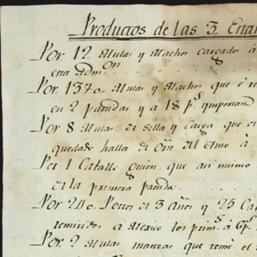 Productos de las 3. Estan
Por 12 Mulas y Machos cargados à
esta Admon
Por 1370 Mulas y Machos que è re
en 2 partidas y a 18 ps importan
Por 8 Mulas de silla y carga que en
quedado halla de ôrn del elmo à
Por 1 Caballo quien que asi mismo
de la primera partida
Por 240 Potros de 3 años y 25 Ca
remitidos a Mexico los prims à 6ps
Por 2 Mulas manzas que tomè el